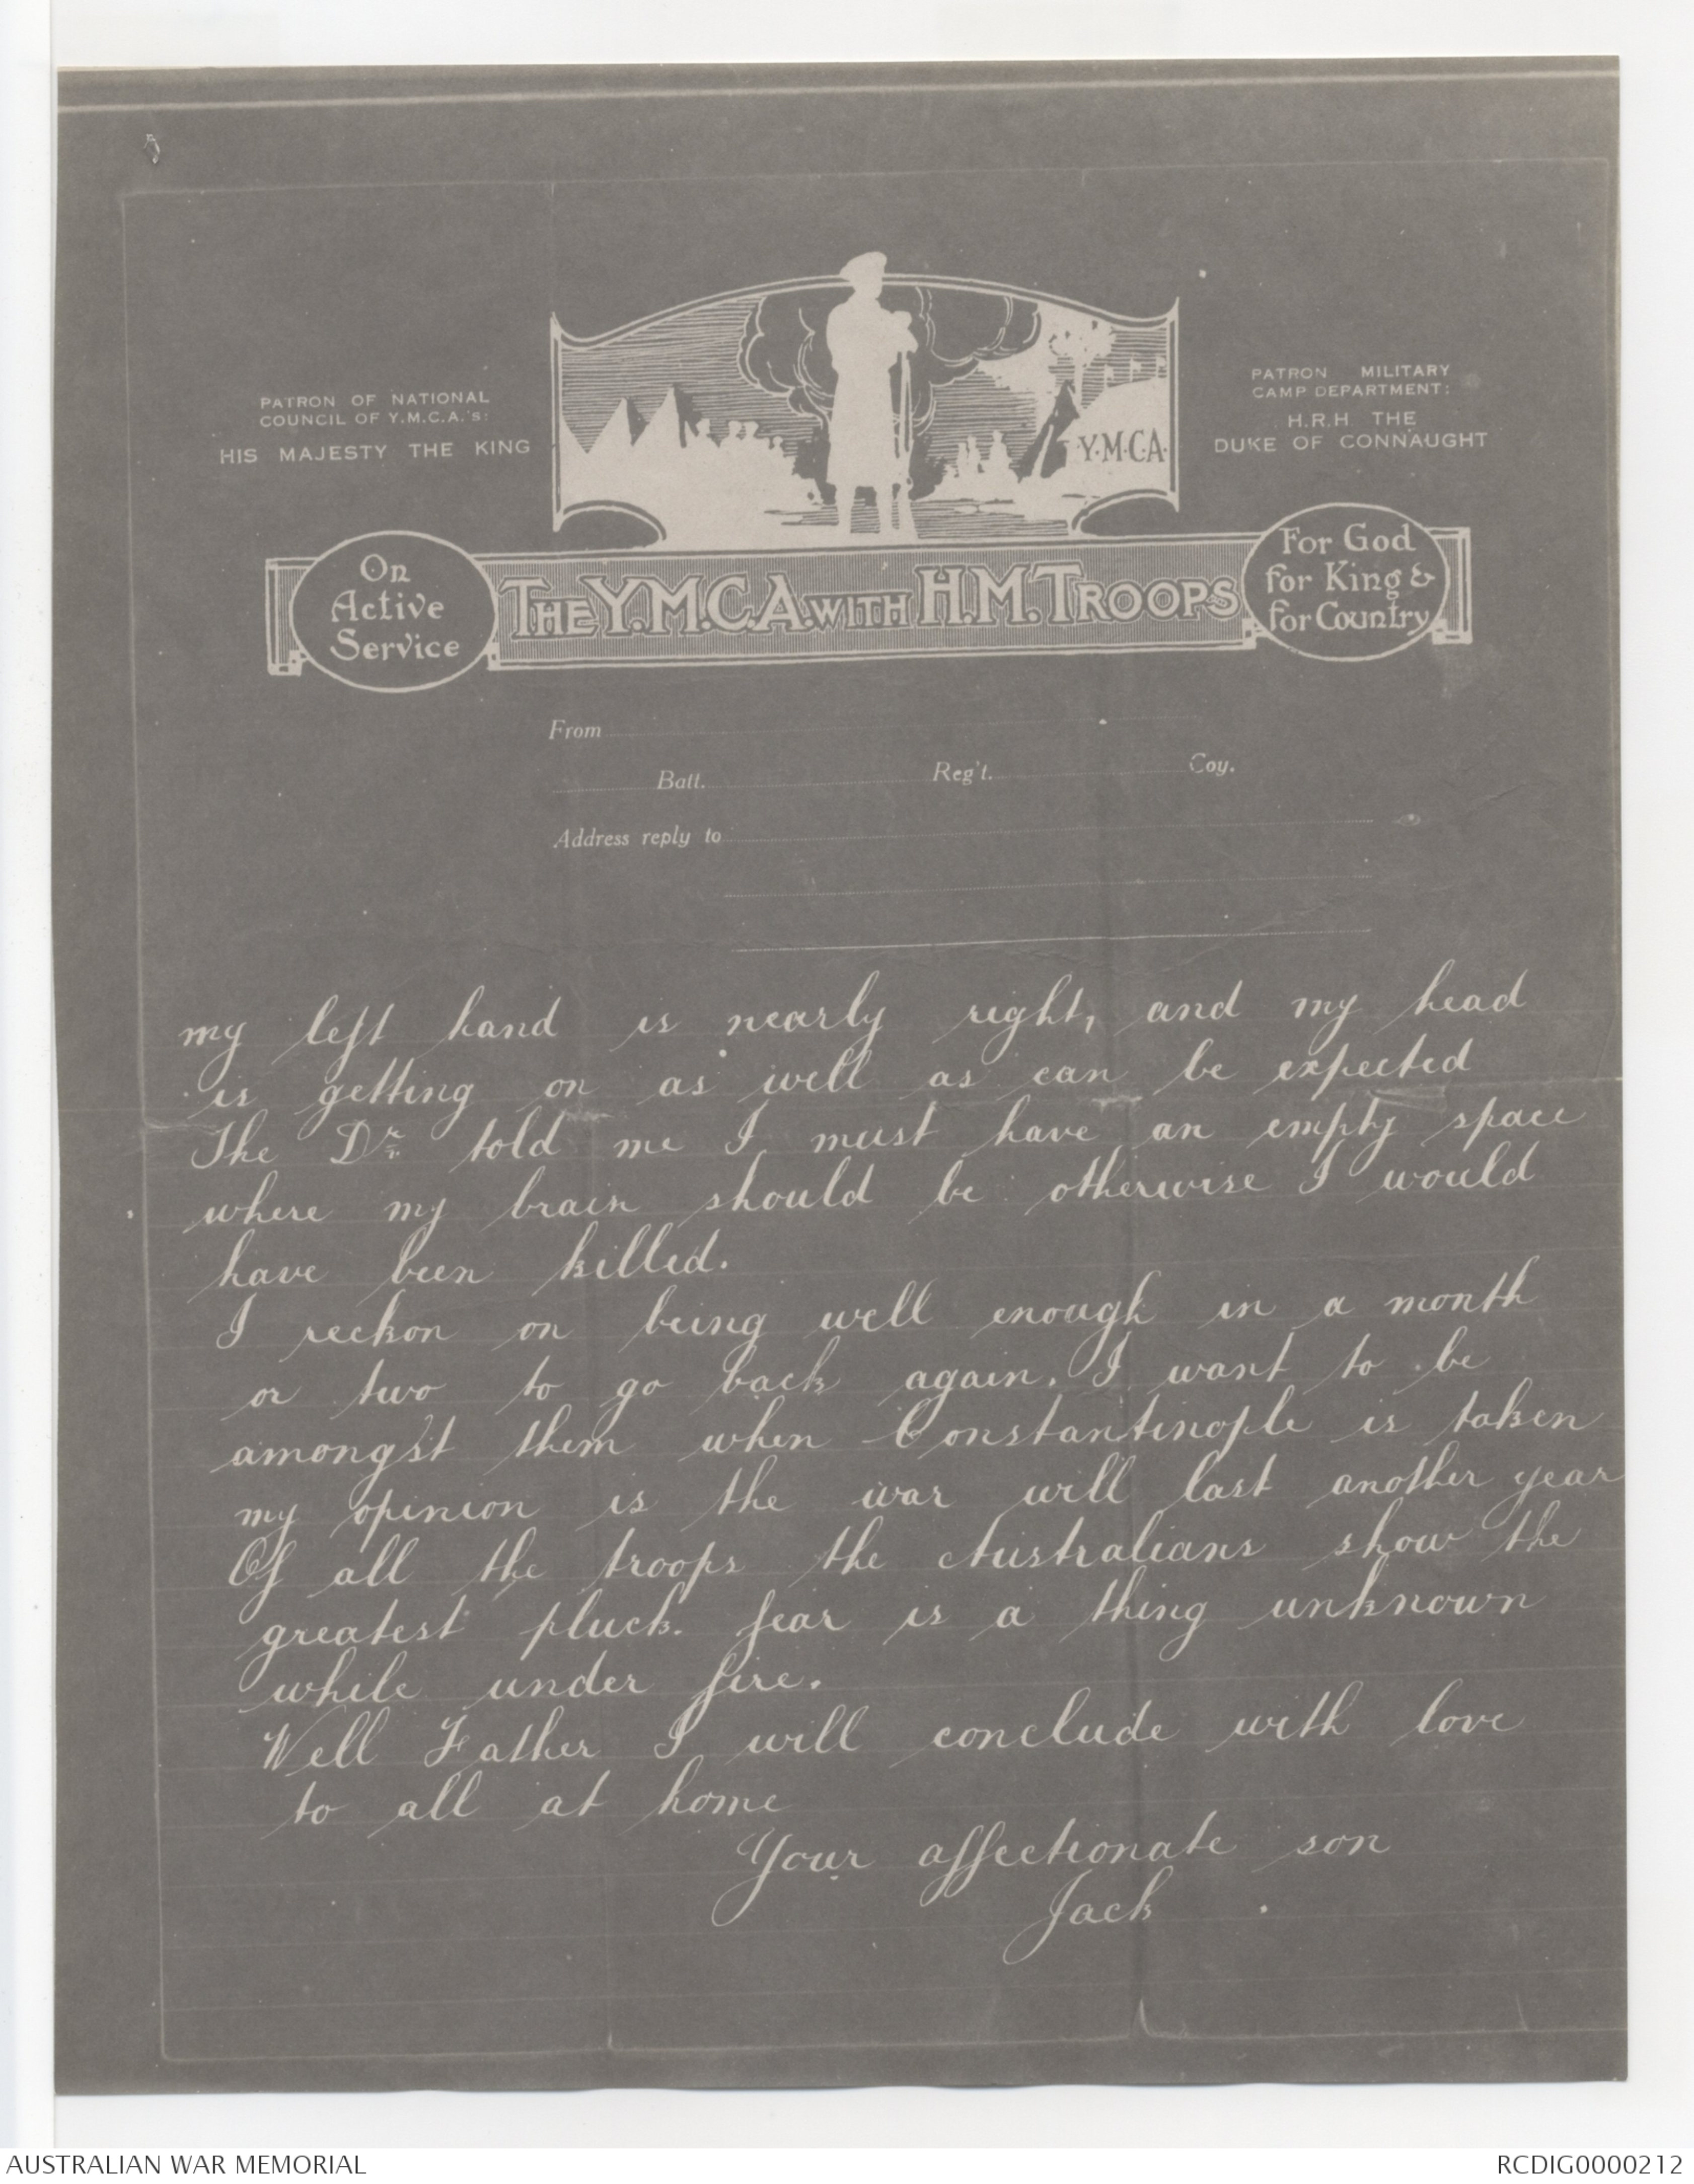 PATRON OF NATIONAL
COUNCIL OF Y.M.C.A.'s:
HIS MAJESTY THE KING
PATRON MILITARY
CAMP DEPARTMENT:
H.R.H THE
DUKE OF CONNAUGHT
Y.M.C.A.
On
Active
Service
THE Y.M.C.A. WITH H.M. TROOPS
For God
for King &
for Country
From
Batt. Reg't. Coy.
Address reply to
my left hand is nearly right, and my head
is getting on as well as can be expected
The Dr. told me I must have an empty space
where my brain should be otherwise I would
have been killed.
I reckon on being well enough in a month
or two to go back again. I want to be
amongst them when Constantinople is taken
my opinion is the war will last another year
Of all the troops the Australians show the
greatest pluck. fear is a thing unknown
while under fire.
Well Father I will conclude with love
to all at home
Your affectionate son
Jack.
AUSTRALIAN WAR MEMORIAL
RCDIG0000212